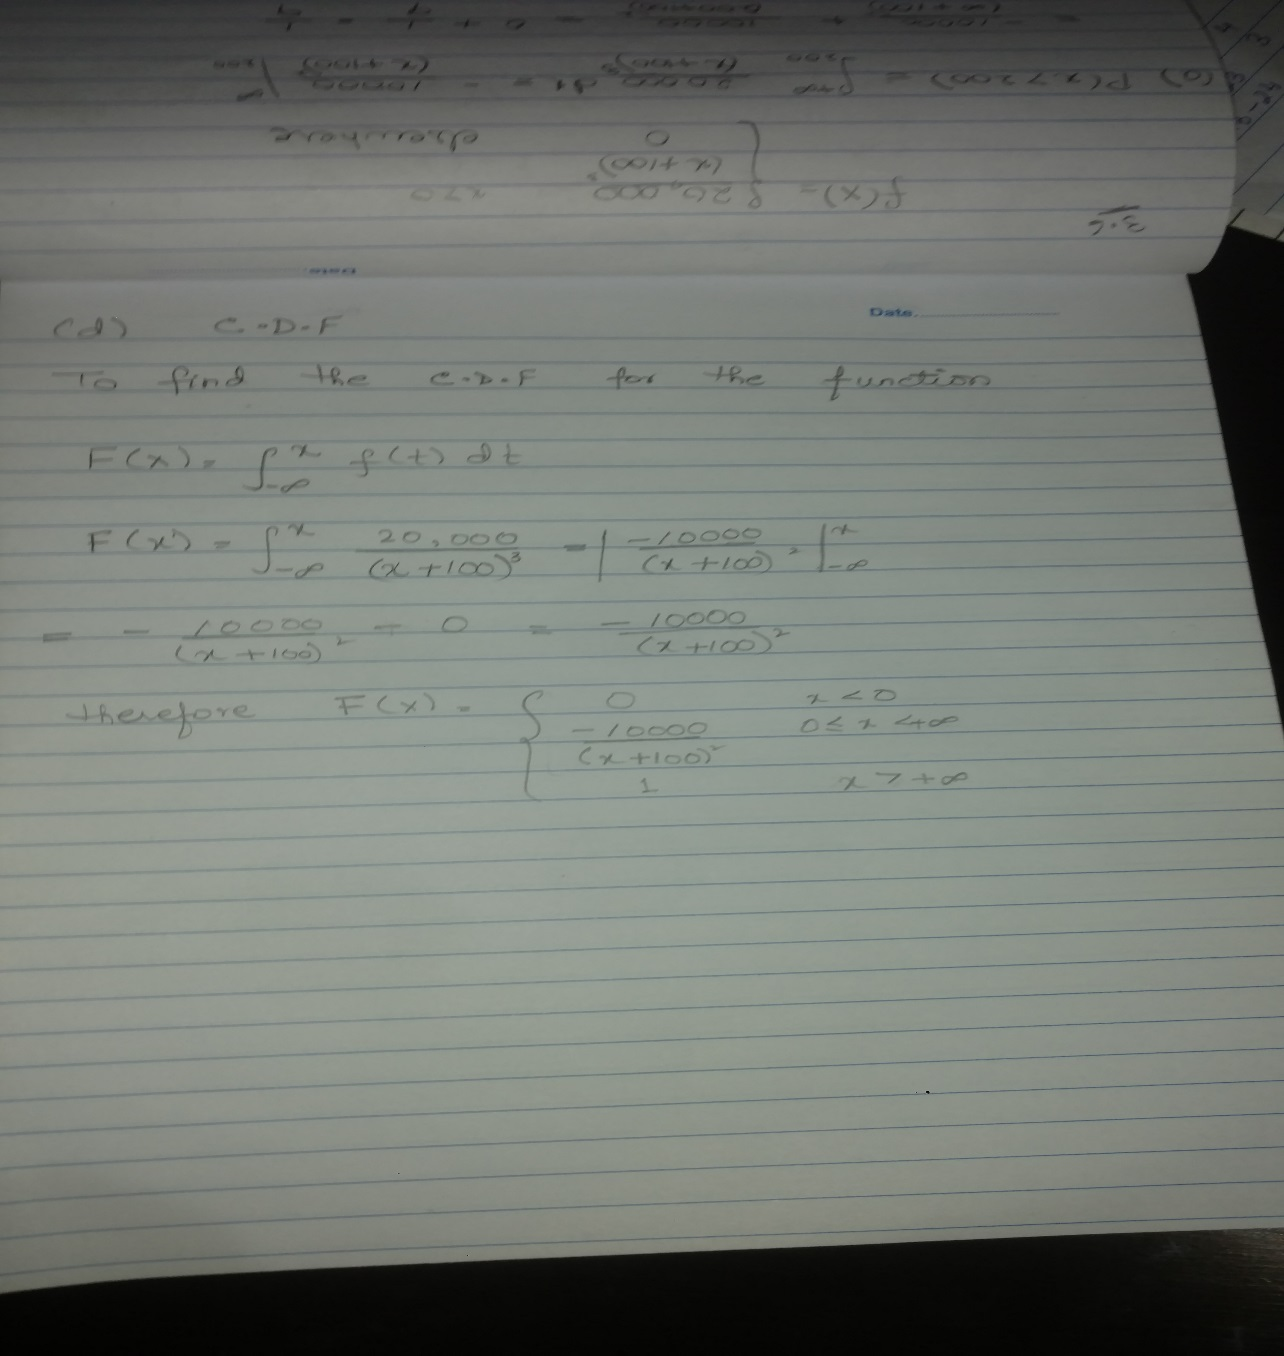 3.6
f(x) = { 20,000 / (x+100)³ x>0
0 elsewhere
(a) P(x>200) = ∫₂₀₀^+∞ 20000 / (x+100)³ dx = - 10000 / (x+100)² |₂₀₀^∞
= 0 + 1/9 = 1/9
Date
Date.
(d) C.D.F
To find the C.D.F for the function
F(x) = ∫_{-∞}^{x} f(t) dt
F(x) = ∫_{-∞}^{x} 20,000 / (x+100)³ = | -10000 / (x+100)² |_{-∞}^{x}
= - 10000 / (x+100)² - 0 = - 10000 / (x+100)²
therefore F(x) = { 0 x<0
-10000 / (x+100)² 0≤x<+∞
1 x>+∞